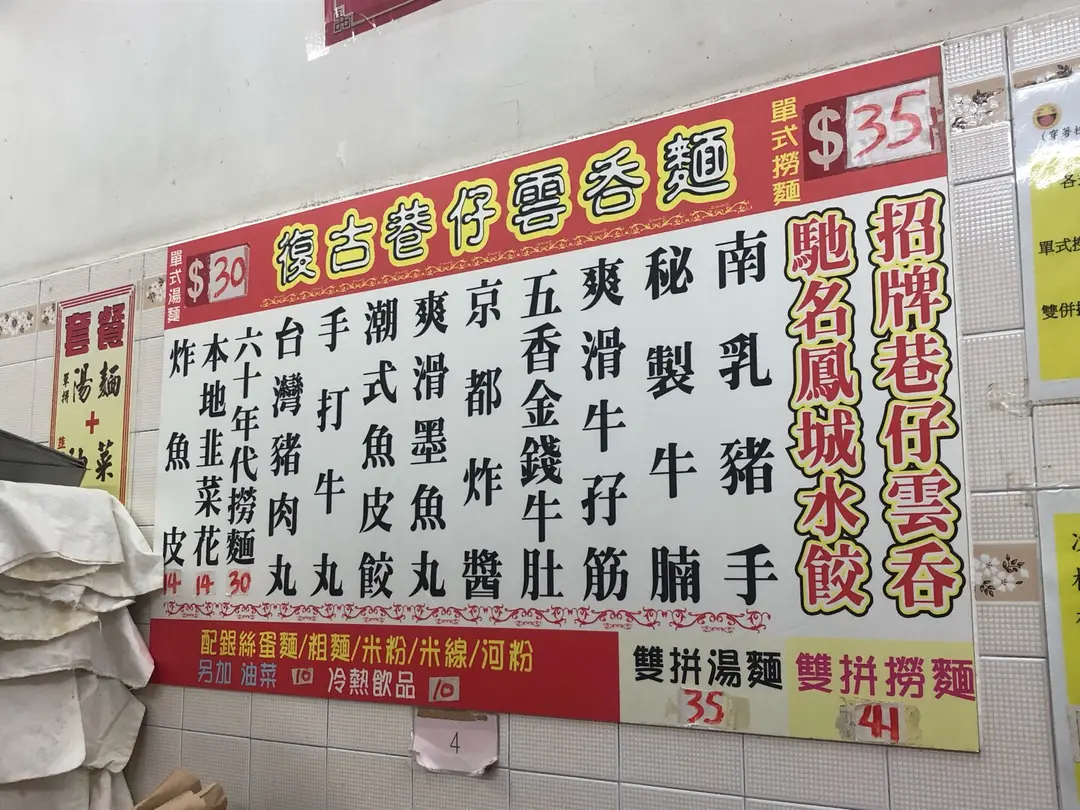 復古巷仔雲吞麵
單式湯麵
$30
單式撈麵
$35
招牌巷仔雲吞
馳名鳳城水餃
南乳豬手
秘製牛腩
爽滑牛孖筋
五香金錢牛肚
京都炸醬
爽滑墨魚丸
潮式魚皮餃
手打牛丸
台灣豬肉丸
六十年代撈麵 30
本地韭菜花 14
炸魚皮 14
配銀絲蛋麵/粗麵/米粉/米線/河粉
另加 油菜 10 冷熱飲品 10
雙拼湯麵
35
雙拼撈麵
41
4
套餐
單拼湯麵
+
油菜
單式撈
雙併